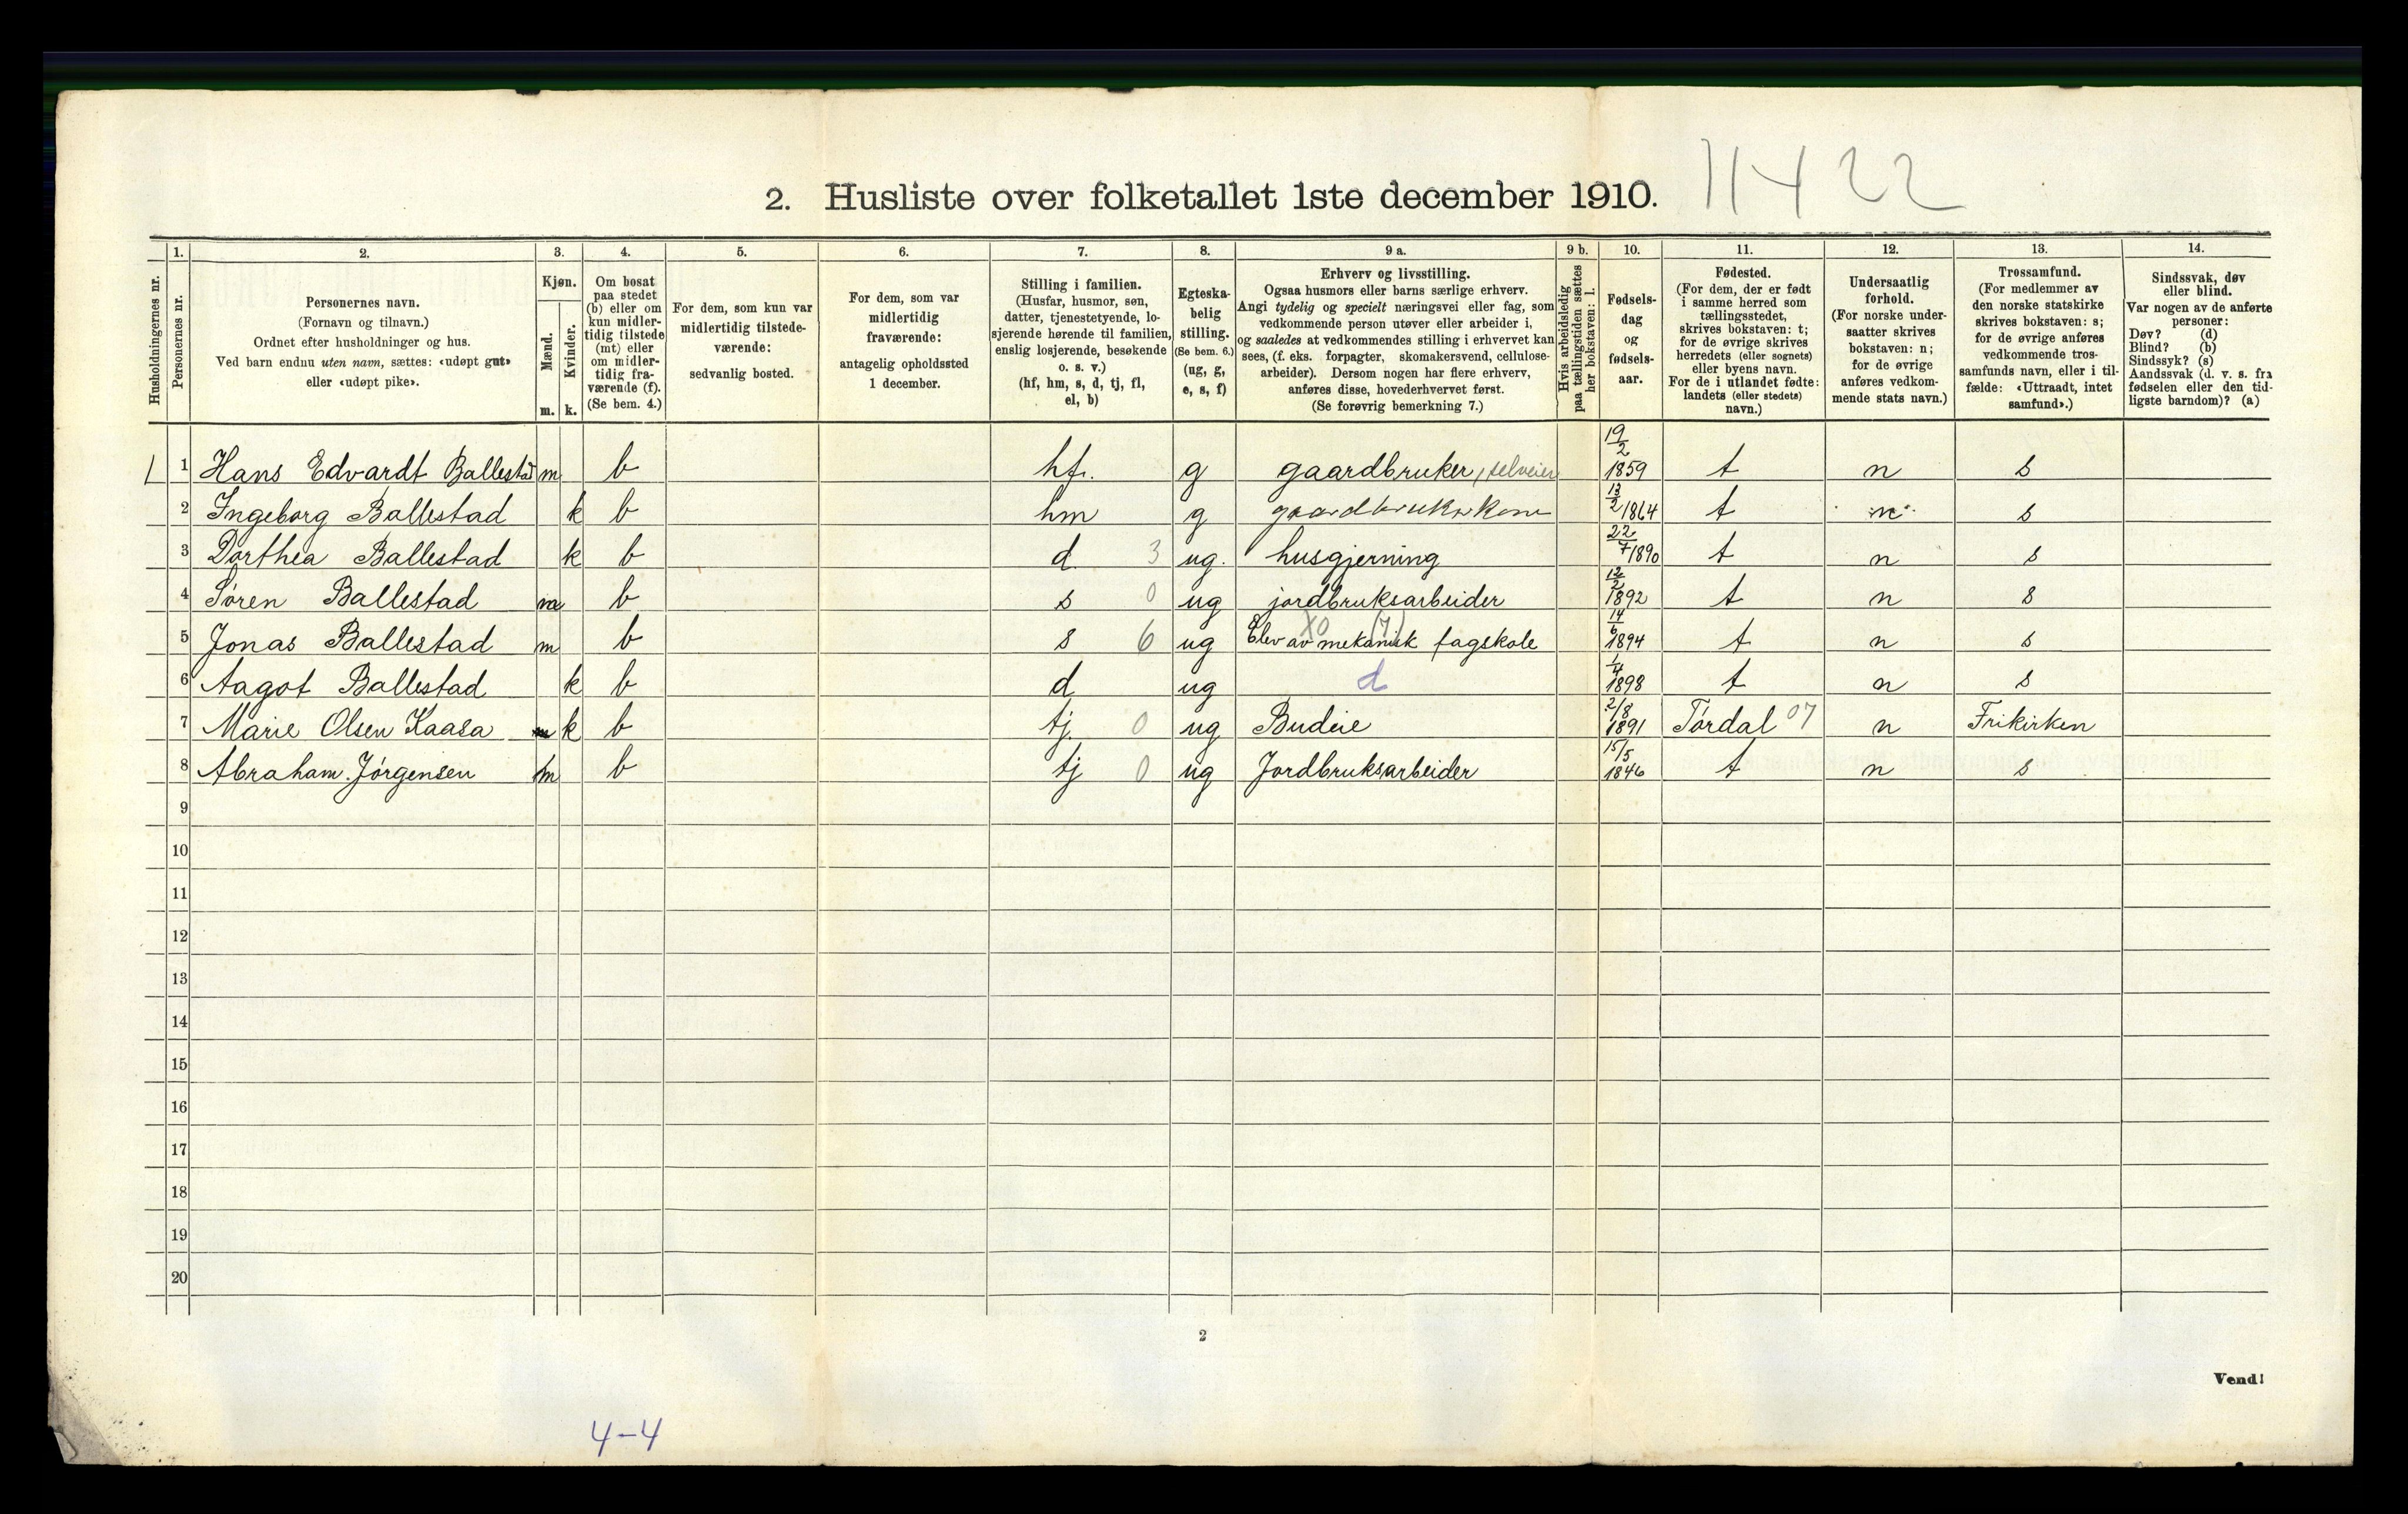 11422
2. Husliste over folketallet 1ste december 1910.
Husholdningernes nr.
1. Personernes nr.
2. Personernes navn.
(Fornavn og tilnavn.)
Ordnet efter husholdninger og hus.
Ved barn endnu uten navn, sættes: «udøpt gut»
eller «udøpt pike».
3. Kjøn.
Mænd. m.
Kvinder. k.
4. Om bosat
paa stedet
(b) eller om
kun midler-
tidig tilstede
(mt) eller
om midler-
tidig fra-
værende (f).
(Se bem. 4.)
5. For dem, som kun var
midlertidig tilstede-
værende:
sedvanlig bosted.
6. For dem, som var
midlertidig
fraværende:
antagelig opholdssted
1 december.
7. Stilling i familien.
(Husfar, husmor, søn,
datter, tjenestetyende, lo-
sjerende hørende til familien,
enslig losjerende, besøkende
o. s. v.)
(hf, hm, s, d, tj, fl,
el, b)
8. Egteska-
belig
stilling.
(Se bem. 6.)
(ug, g,
e, s, f)
9 a. Erhverv og livsstilling.
Ogsaa husmors eller barns særlige erhverv.
Angi tydelig og specielt næringsvei eller fag, som
vedkommende person utøver eller arbeider i,
og saaledes at vedkommendes stilling i erhvervet kan
sees, (f. eks. forpagter, skomakersvend, cellulose-
arbeider). Dersom nogen har flere erhverv,
anføres disse, hovederhvervet først.
(Se forøvrig bemerkning 7.)
9 b. Hvis arbeidsledig
paa tællingstiden sættes
her bokstaven: l.
10. Fødsels-
dag
og
fødsels-
aar.
11. Fødested.
(For dem, der er født
i samme herred som
tællingsstedet,
skrives bokstaven: t;
for de øvrige skrives
herredets (eller sognets)
eller byens navn.
For de i utlandet fødte:
landets (eller stedets)
navn.)
12. Undersaatlig
forhold.
(For norske under-
saatter skrives
bokstaven: n;
for de øvrige
anføres vedkom-
mende stats navn.)
13. Trossamfund.
(For medlemmer av
den norske statskirke
skrives bokstaven: s;
for de øvrige anføres
vedkommende tros-
samfunds navn, eller i til-
fælde: «Uttraadt, intet
samfund».)
14. Sindssvak, døv
eller blind.
Var nogen av de anførte
personer:
Døv? (d)
Blind? (b)
Sindssyk? (s)
Aandssvak (d. v. s. fra
fødselen eller den tid-
ligste barndom)? (a)
1 1 Hans Edvardt Ballestad m b hf. g gaardbruker, selveier 19/2 1859 t n s
2 Ingeborg Ballestad k b hm g gaardbrukerkone 13/2 1864 t n s
3 Dorthea Ballestad k b d 3 ug. husgjerning 22/7 1890 t n s
4 Søren Ballestad m b s 0 ug jordbruksarbeider 12/2 1892 t n s
5 Jonas Ballestad m b s 6 ug Elev av mekanisk fagskole X0 (7) 14/6 1894 t n s
6 Aagot Ballestad k b d ug d 1/4 1898 t n s
7 Marie Olsen Kaasa k b tj 0 ug Budeie 2/8 1891 Tørdal 07 n Frikirken
8 Abraham Jørgensen m b tj 0 ug Jordbruksarbeider 15/5 1846 t n s
9
10
11
12
13
14
15
16
17
18
19
20
2
Vend!
4-4